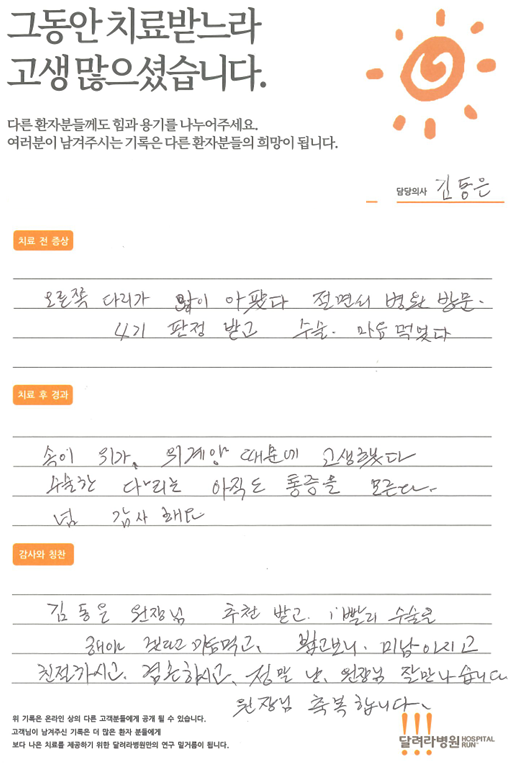 그동안 치료받느라
고생 많으셨습니다.
다른 환자분들께도 힘과 용기를 나누어주세요.
여러분이 남겨주시는 기록은 다른 환자분들의 희망이 됩니다.
담당의사 김동은
치료 전 증상
오른쪽 다리가 많이 아팠다 절면서 병원 방문.
4기 판정 받고 수술. 마음 먹었다
치료 후 경과
속이 위가, 위계양 때문에 고생했다
수술한 다리는 아직도 통증을 모른다.
넘 감사 해요
감사와 칭찬
김동은 원장님 추천 받고. 빨리 수술을
해야 겠다고 마음먹고, 보니. 미남이시고
친절하시고. 겸손하시고, 정말 난, 원장님 잘만나습니다
원장님 축복합니다.
위 기록은 온라인 상의 다른 고객분들에게 공개 될 수 있습니다.
고객님이 남겨주신 기록은 더 많은 환자 분들에게
보다 나은 치료를 제공하기 위한 달려라병원만의 연구 밑거름이 됩니다.
달려라병원 HOSPITAL RUN